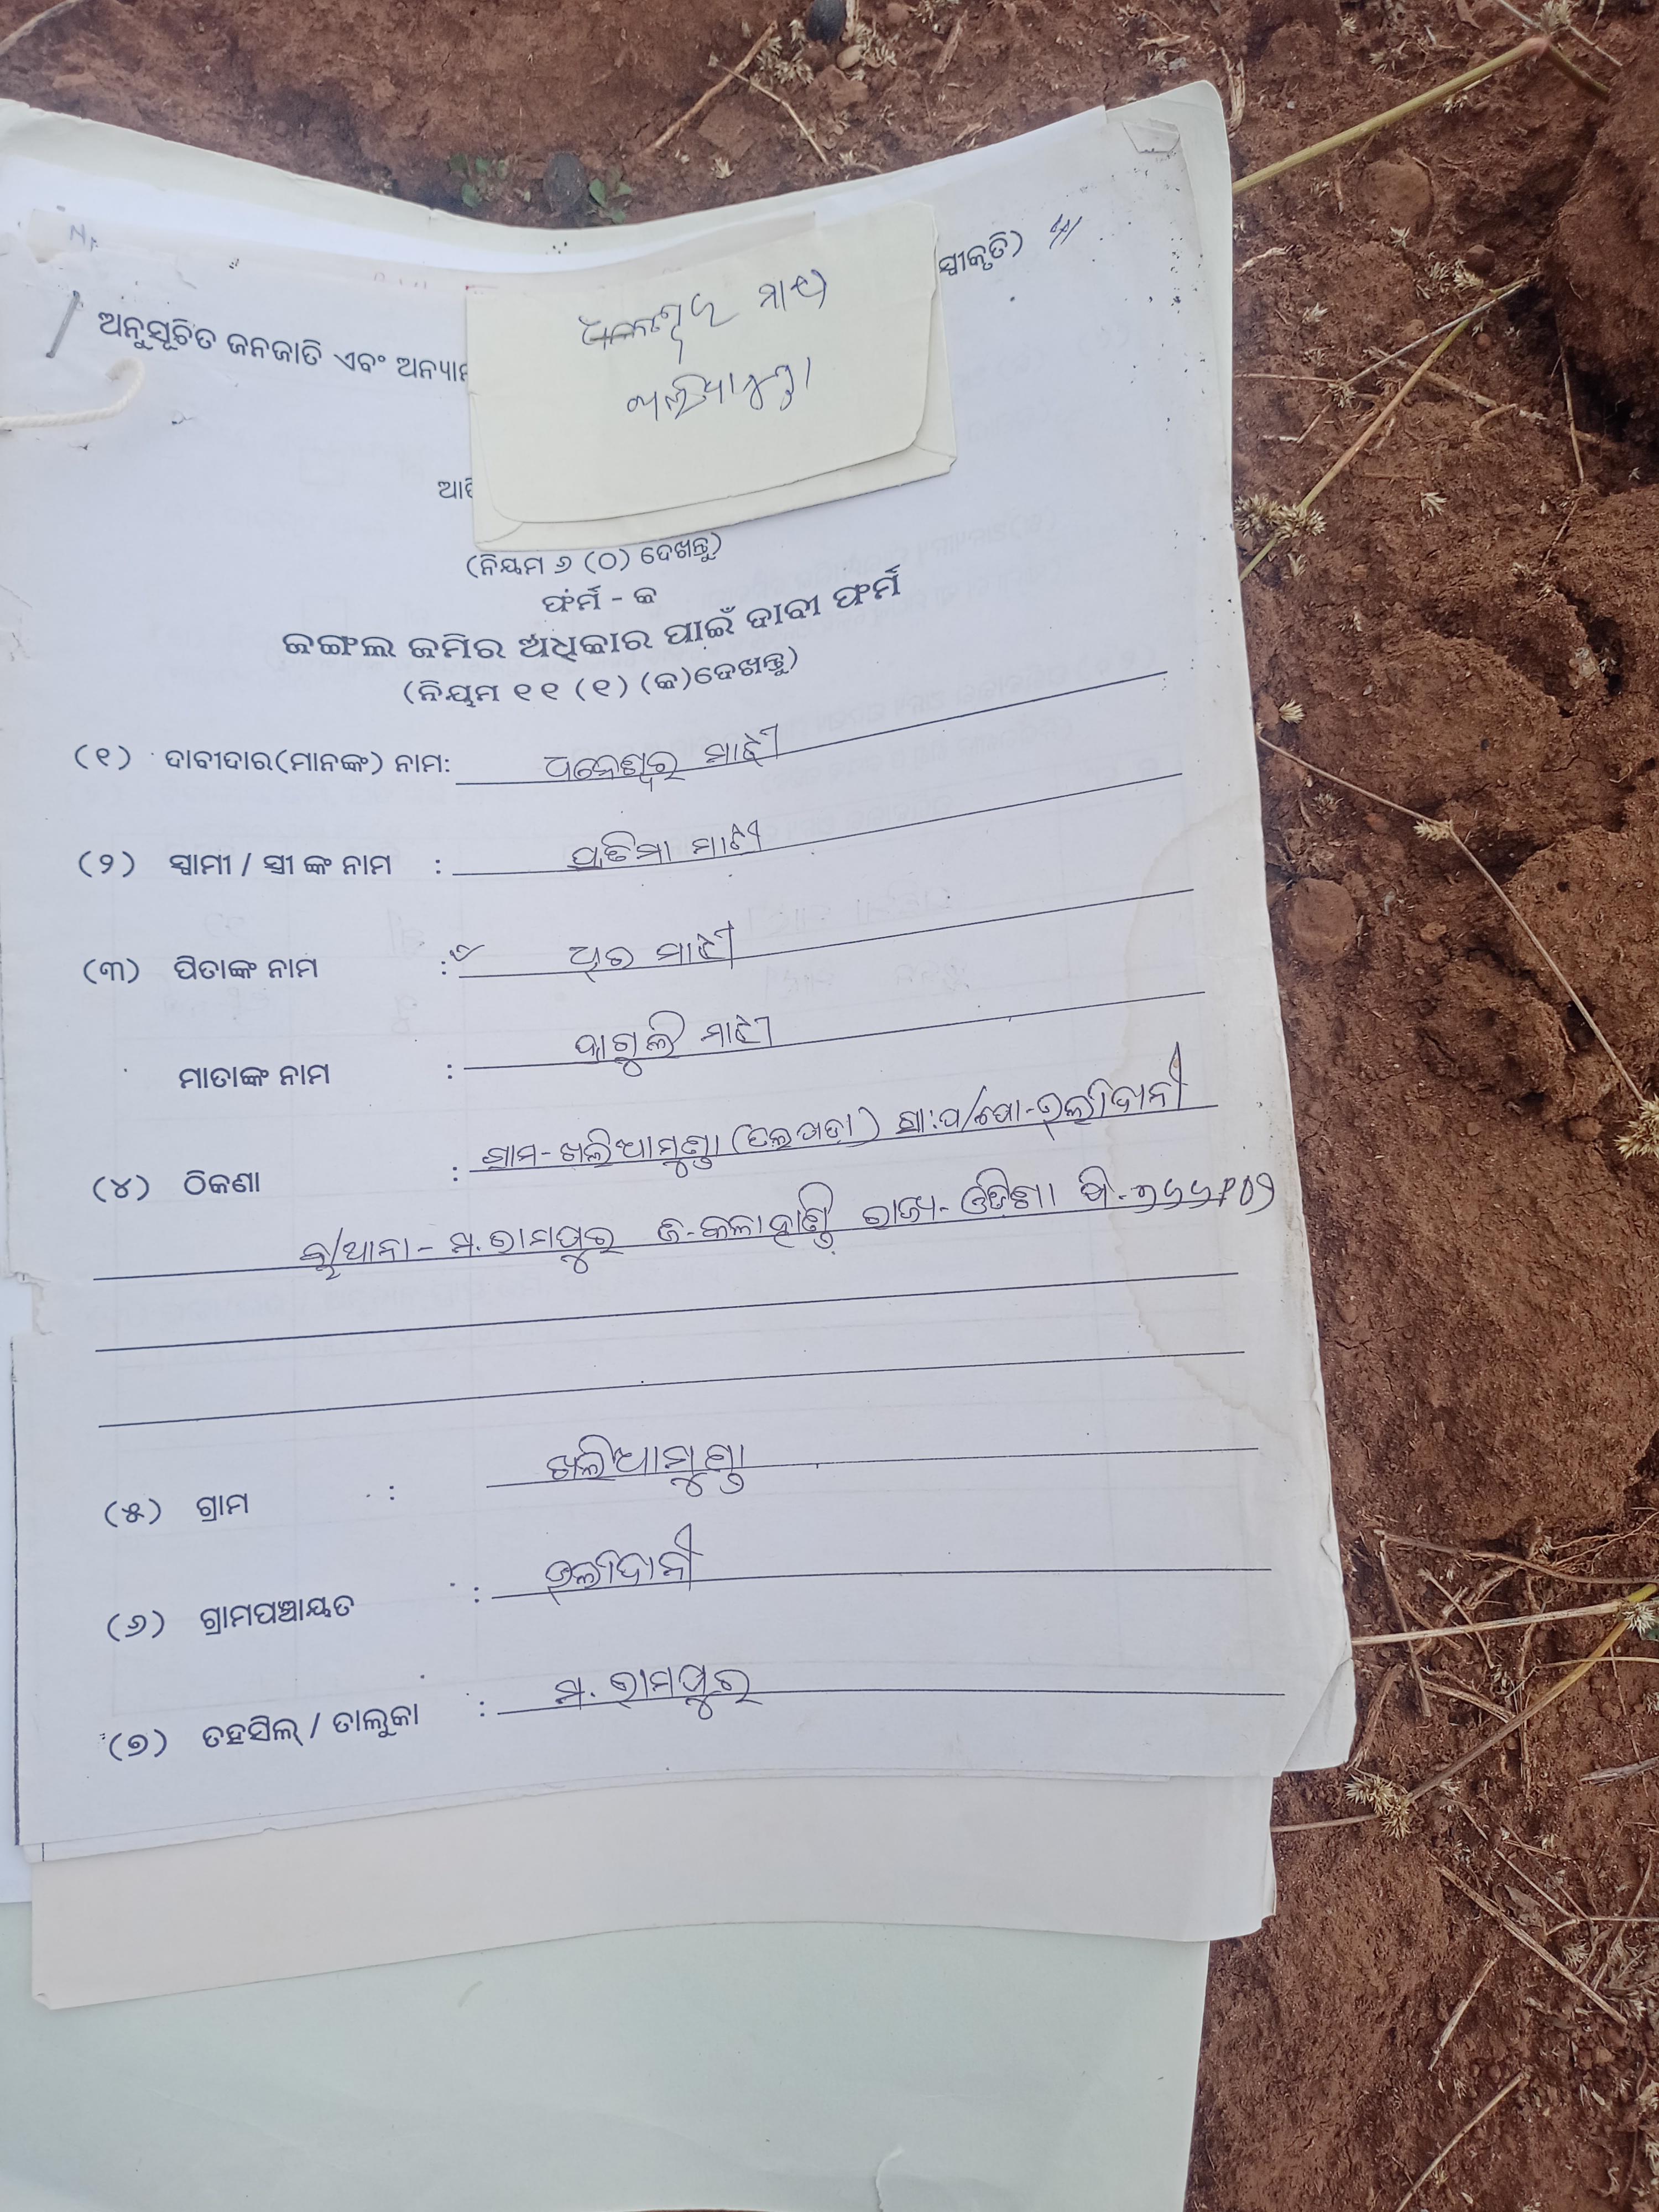 ସ୍ୱୀକୃତି)
ଅନୁସୂଚିତ ଜନଜାତି ଏବଂ ଅନ୍ୟାନ
ମାଝୀ
ଖଲିଆମୁଣ୍ଡା
(ନିୟମ ୬ (୦) ଦେଖନ୍ତୁ)
ଫର୍ମ - କ
ଜଙ୍ଗଲ ଜମିର ଅଧିକାର ପାଇଁ ଦାବୀ ଫର୍ମ
(ନିୟମ ୧୧ (୧) (କ)ଦେଖନ୍ତୁ)
(୧) ଦାବୀଦାର(ମାନଙ୍କ) ନାମ: ଧନେଶ୍ୱର ମାଝୀ
(୨) ସ୍ୱାମୀ / ସ୍ତ୍ରୀ ଙ୍କ ନାମ : ପ୍ରତିମା ମାଝୀ
(୩) ପିତାଙ୍କ ନାମ : ଥିର ମାଝୀ
ମାତାଙ୍କ ନାମ : ଦାଗୁଲି ମାଝୀ
(୪) ଠିକଣା : ଗ୍ରାମ-ଖଲିଆମୁଣ୍ଡା ଗ୍ରା:ପ/ପୋ-
ବ୍ଲ/ଥାନା - ମ.ରାମପୁର ଜି-କଳାହାଣ୍ଡି ରାଜ୍ୟ-ଓଡିଶା ପି-୭୬୬୧୦୨
(୫) ଗ୍ରାମ : ଖଲିଆମୁଣ୍ଡା
(୬) ଗ୍ରାମପଞ୍ଚାୟତ :
(୭) ତହସିଲ୍ / ତାଲୁକା : ମ.ରାମପୁର